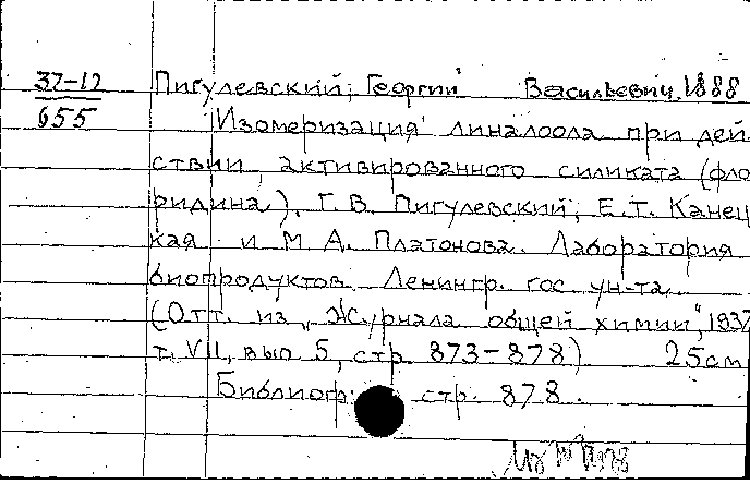 37-12
655
Пигулевский, Георгий Васильевич. 1888
Изомеризация линалоола при дей
ствии активированного силиката (фло
ридина). Г. В. Пигулевский, Е. Т. Канец
кая и М. А. Платонова. Лаборатория
биопродуктов Ленингр. гос ун-та
(Отт. из „Журнала общей химии", 1937
т. VII, вып. 5, стр. 873-878) 25см
Библиогр: стр. 878.